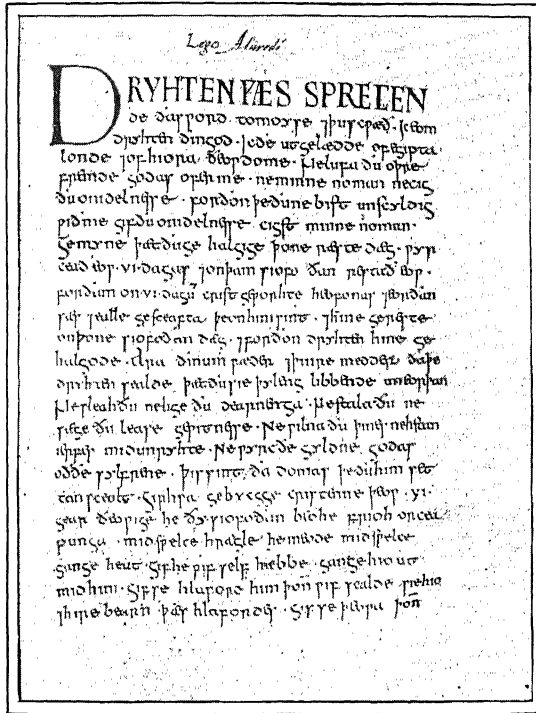 Leges Aluredi
DRYHTEN ǷÆS SPRECEN
de ðas ƿord to moyse ⁊ þus cƿæð · Ic eom
dryhten ðin god · Ic ðe ut gelædde of egipta
londe ⁊ of hiora ðeoƿdome · Ne lufa ðu oþre
fremde godas ofer me · ne minne noman ne cig
ðu on idelnesse · forðon þe ðu ne bist unscyldig
ƿið me gif ðu on idelnesse cigst minne noman ·
Gemyne þæt ðu ge halgige þone ræste dæg · ƿyr
ceað eoƿ · VI · dagas ⁊ on þam siofo ðan restað eoƿ ·
forðam on · VI · dagū crist geƿorhte heofonas ⁊ eorðan
sæs ⁊ ealle gesceafta þe on him sint · ⁊ hine gereste
on þone siofoðan dæg · ⁊ forðon dryhten hine ge
halgode · Ara ðinum fæder ⁊ þinre medder ða þe
dryhten sealde þæt ðu sie þy leng libbende on eorþan
Ne sleah ðu ne lige ðu dearnenga · Ne stala ðu ne
sæge ðu lease geƿitnesse · Ne ƿilna ðu þines nehstan
ierfes mid unryhte · Ne ƿyrc ðe gyldne godas
oððe sylfrene · Þis sint ða domas þe ðu him set
tan scealt · Gif hƿa gebycgge cristenne þeoƿ · VI ·
gear ðeoƿige he ðy siofoðan bio he frioh orcea
punga · mid sƿelce hrægle he ineode mid sƿelce
gange he ut · Gif he ƿif self hæbbe · gange hio ut
mid him · Gif se hlaford him þoñ ƿif sealde sie hio
⁊ hire bearn þæs hlafordes · Gif se þeoƿa þoñ